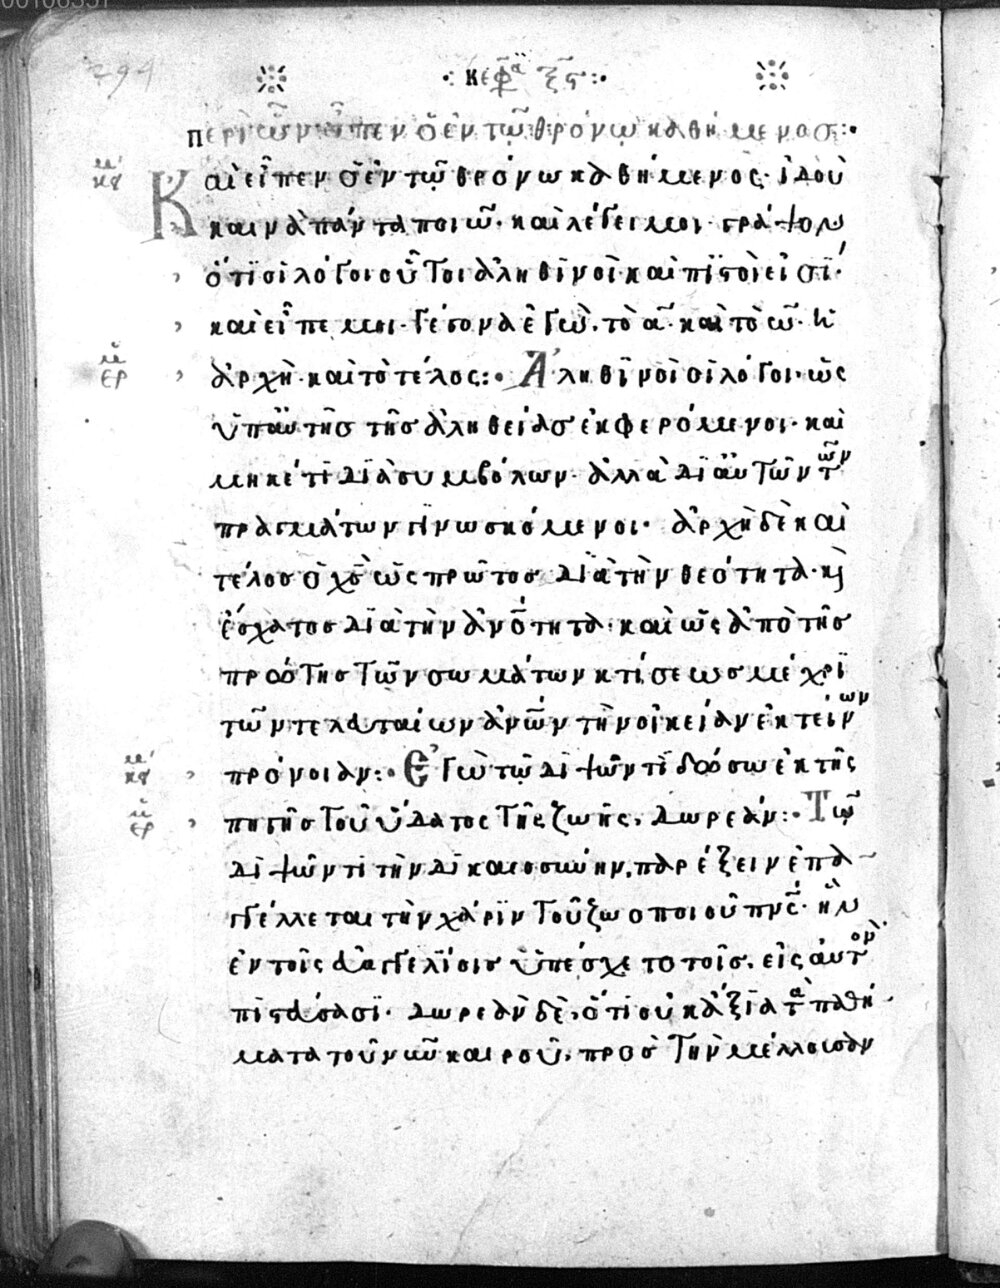 294
·: κεφᾱ ξϛ :·
περὶ ὧν εἶπεν ὁ ἐν τῷ θρόνῳ καθήμενος :·
κει Καὶ εἶπεν ὁ ἐν τῷ θρόνω καθήμενος· ἰδοὺ
καινὰ πάντα ποιῶ· καὶ λέγει μοι· γράψον
ὅτι οἱ λόγοι οὗτοι ἀληθινοὶ καὶ πιστοὶ εἰσί·
καὶ εἶπε μοι· γέγονα ἐγὼ. τὸ α̅· καὶ τὸ ω̅· ἡ
ερ ἀρχὴ· καὶ τὸ τέλος :· Ἀληθινοὶ οἱ λόγοι· ὡς
ὑπ' αὐτῆς τῆς ἀληθείας ἐκφερόμενοι· καὶ
μηκέτι διὰ συμβόλων· ἀλλὰ δι αὐτῶν τῶν
πραγμάτων γινωσκόμενοι· ἀρχὴ δὲ καὶ
τέλος ὁ χς̅ ὡς πρῶτος διὰ τὴν θεότητα· κὶ
ἔσχατος διὰ τὴν ἀνότητα· καὶ ὡς ἀπὸ τῆς
πρώτης τῶν σωμάτων κτίσεως μέχρι
τῶν τελευταίων ἀνων τὴν οἰκείαν ἐκτείνων
κει πρόνοιαν :· Ἐγὼ τῷ διψῶντι δώσω ἐκ τῆς
ερ πηγῆς τοῦ ὕδατος τῆς ζωῆς, δωρεάν :· Τῷ
διψῶντι τὴν δικαιοσύνην, παρέξειν ἐπα
γγέλλεται τὴν χάριν τοῦ ζωοποιοῦ πνς̅· ἣν
ἐν τοῖς εὐαγγελίοις ὑπέσχετο τοῖς εἰς αὐτὸν
πιστεύσασι· δωρεὰν δὲ, ὅτι οὐκ ἄξια τὰ παθή
ματα τοῦ νῦν καιροῦ, πρὸς τὴν μέλλουσαν